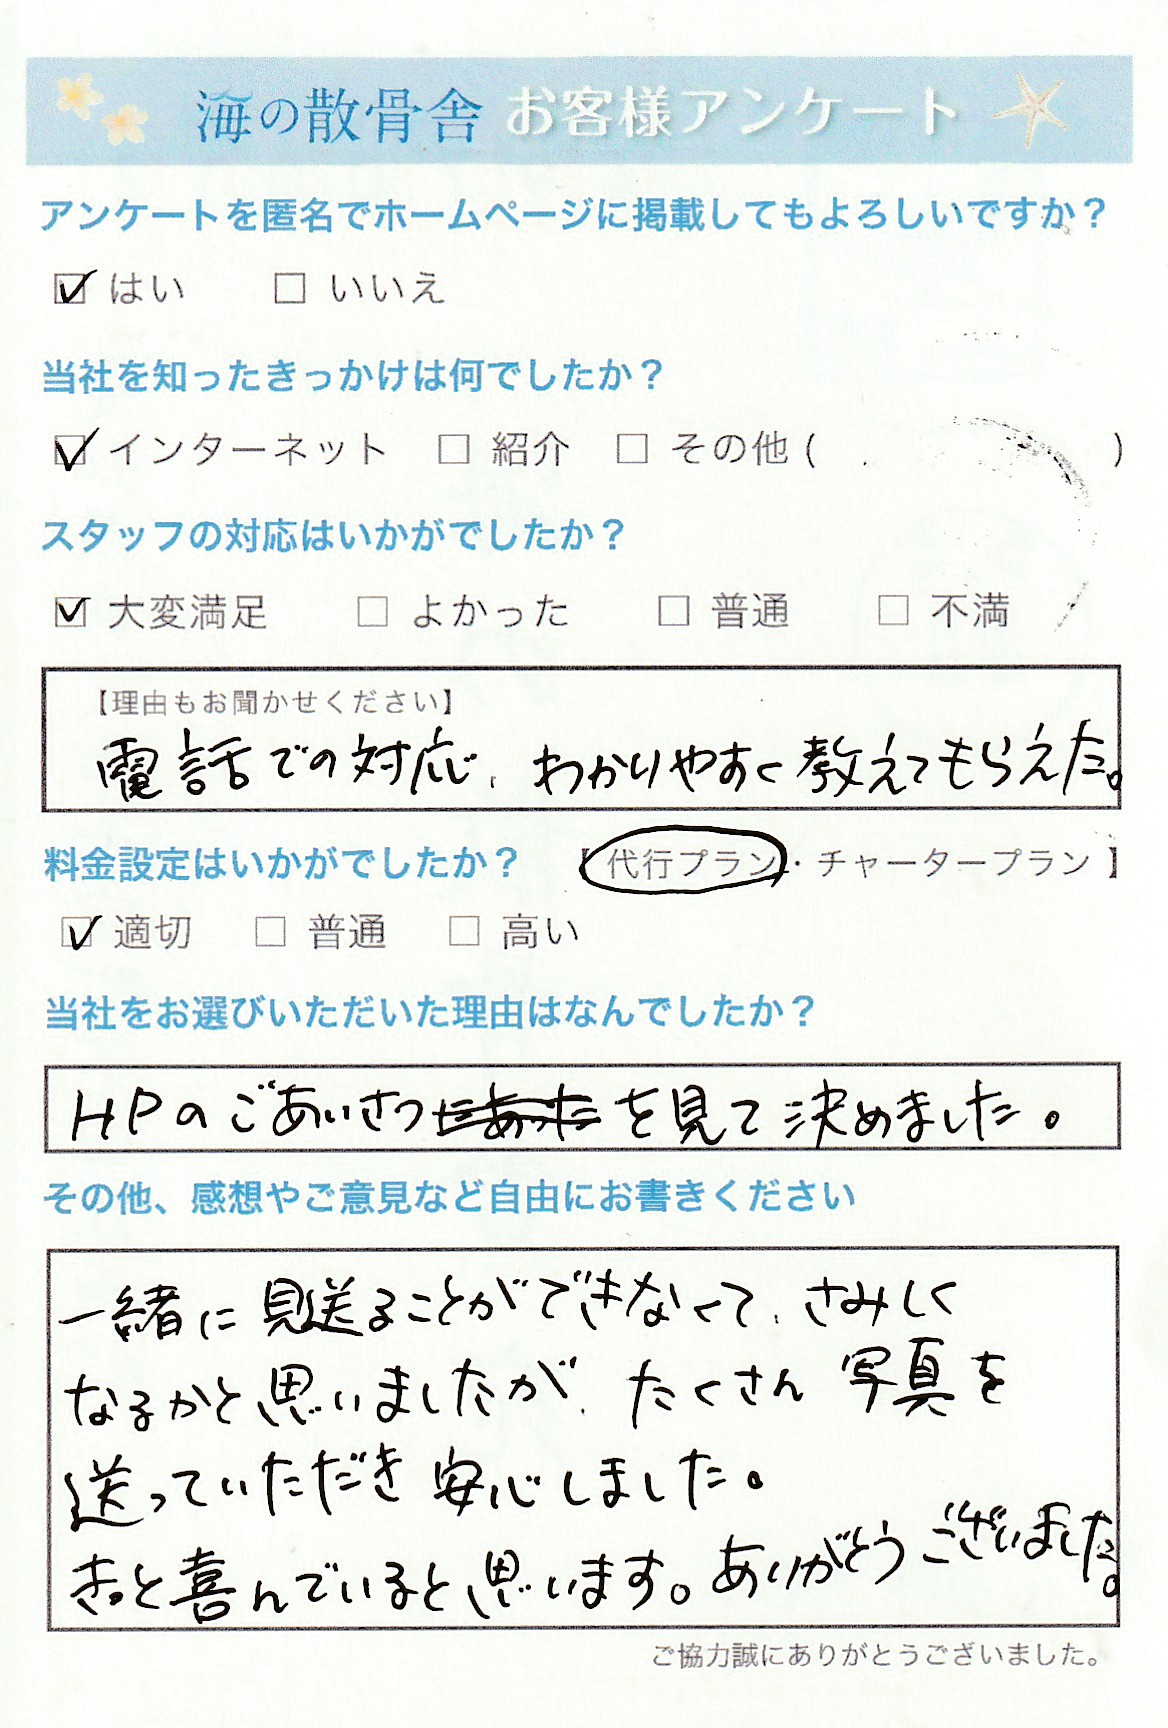 海の散骨舎 お客様アンケート
アンケートを匿名でホームページに掲載してもよろしいですか？
☑ はい □ いいえ
当社を知ったきっかけは何でしたか？
☑ インターネット □ 紹介 □ その他 ( )
スタッフの対応はいかがでしたか？
☑ 大変満足 □ よかった □ 普通 □ 不満
【理由もお聞かせください】
電話での対応、わかりやすく教えてもらえた。
料金設定はいかがでしたか？ 【 代行プラン・チャータープラン 】
☑ 適切 □ 普通 □ 高い
当社をお選びいただいた理由はなんでしたか？
HPのごあいさつを見て決めました。
その他、感想やご意見など自由にお書きください
一緒に見送ることができなくて、さみしく
なるかと思いましたが、たくさん写真を
送っていただき安心しました。
きっと喜んでいると思います。ありがとうございました。
ご協力誠にありがとうございました。